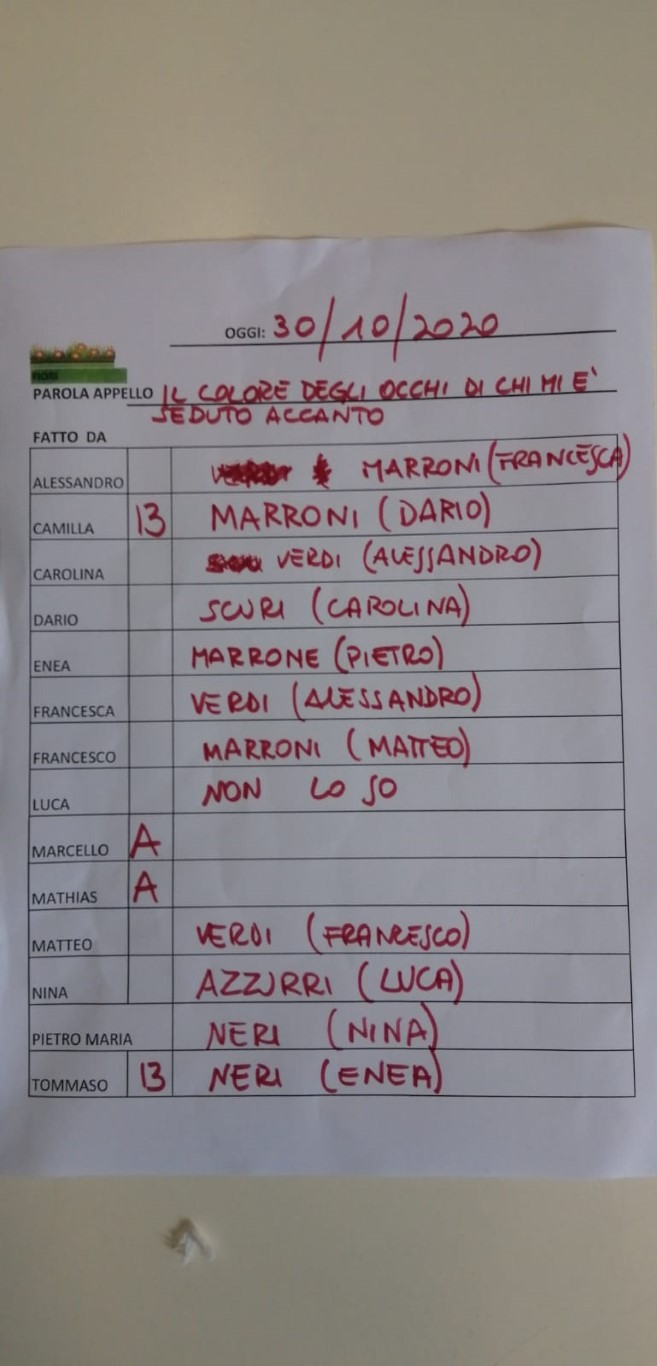 OGGI: 30/10/2020
PAROLA APPELLO IL COLORE DEGLI OCCHI DI CHI MI E'
SEDUTO ACCANTO
FATTO DA
ALESSANDRO MARRONI (FRANCESCA)
CAMILLA 13 MARRONI (DARIO)
CAROLINA VERDI (ALESSANDRO)
DARIO SCURI (CAROLINA)
ENEA MARRONE (PIETRO)
FRANCESCA VERDI (ALESSANDRO)
FRANCESCO MARRONI (MATTEO)
LUCA NON LO SO
MARCELLO A
MATHIAS A
MATTEO VERDI (FRANCESCO)
NINA AZZURRI (LUCA)
PIETRO MARIA NERI (NINA)
TOMMASO 13 NERI (ENEA)